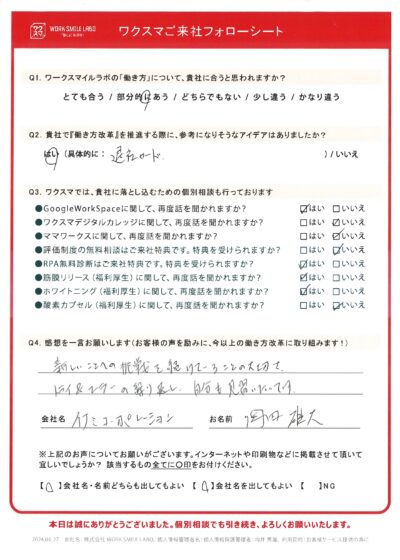 ワクスマ
WORK SMILE LABO
ワクスマご来社フォローシート
Q1. ワークスマイルラボの「働き方」について、貴社に合うと思われますか?
とても合う / 部分的にあう / どちらでもない / 少し違う / かなり違う
Q2. 貴社で『働き方改革』を推進する際に、参考になりそうなアイデアはありましたか?
はい (具体的に: 退社カード )/ いいえ
Q3. ワクスマでは、貴社に落とし込むための個別相談も行っております
●GoogleWorkSpaceに関して、再度話を聞かれますか? ☑はい □いいえ
●ワクスマデジタルカレッジに関して、再度話を聞かれますか? □はい ☑いいえ
●ママワークスに関して、再度話を聞かれますか? □はい ☑いいえ
●評価制度の無料相談はご来社特典です。特典を受けられますか? □はい ☑いいえ
●RPA無料診断はご来社特典です。特典を受けられますか? ☑はい □いいえ
●筋膜リリース(福利厚生)に関して、再度話を聞かれますか? □はい ☑いいえ
●ホワイトニング(福利厚生)に関して、再度話を聞かれますか? □はい ☑いいえ
●酸素カプセル(福利厚生)に関して、再度話を聞かれますか? □はい ☑いいえ
Q4. 感想を一言お願いします(お客様の声を励みに、今以上の働き方改革に取り組みます!)
新しいことへの挑戦を続けていることの大切さ、
トライ&エラーの繰り返し、自分も見習いたいです。
会社名 イケミコーポレーション お名前 岡田 雄大
※上記のお声についてお願いがございます。インターネットや印刷物などに掲載させて頂いて
宜しいでしょうか? 該当するもの全てに〇印をお付けください。
【〇】会社名・名前どちらも出してもよい 【〇】写真を出してもよい 【 】NG
本日は誠にありがとうございました。個別相談でも引き続き、よろしくお願いいたします。